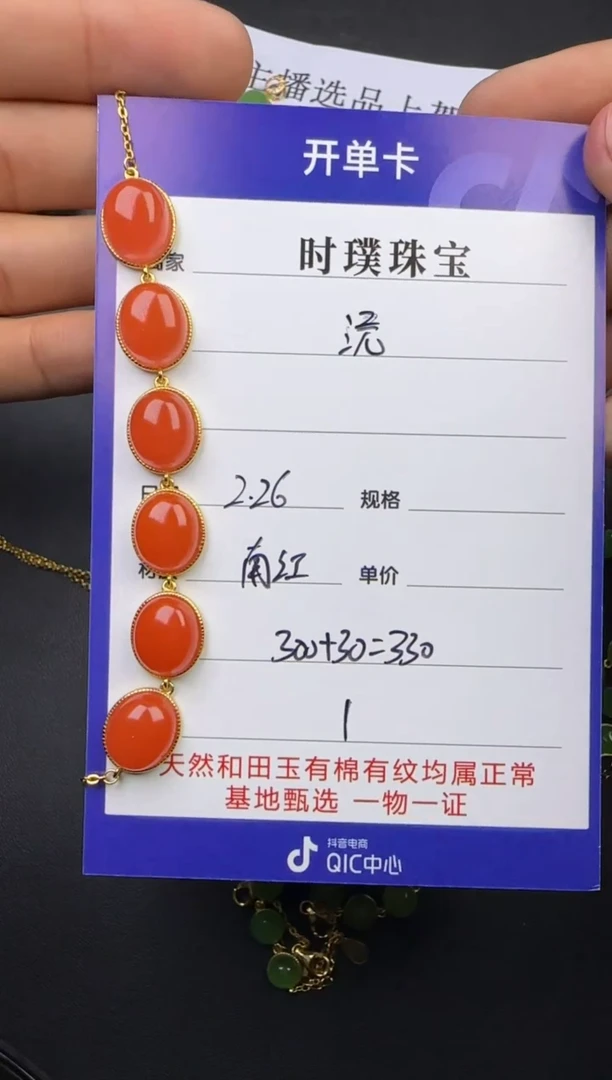 主播选品上架
开单卡
家 时璞珠宝
流
2.26 规格
南红 单价
300+30=330
1
天然和田玉有棉有纹均属正常
基地甄选 一物一证
抖音电商
QIC中心